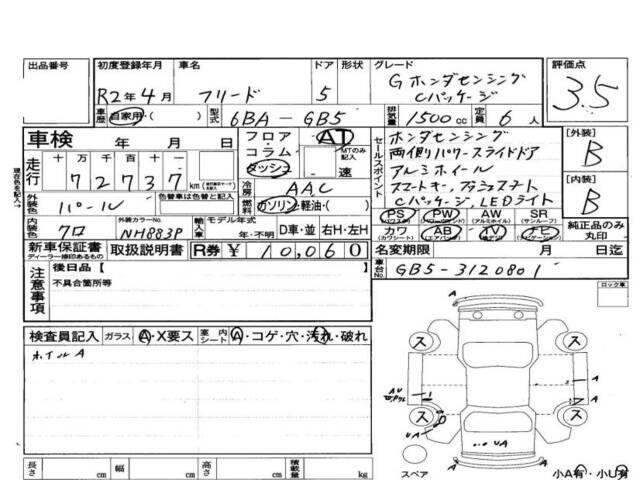 出品番号
初度登録年月
R2年4月
車名
フリード
ドア
5
形状
グレード
Gホンダセンシング
Cパッケージ
評価点
3.5
車歴 自家用・( )
型式 6BA-GB5
排気量 1500cc
定員 6人
車検 年 月 日
フロア・コラム・ダッシュ
AT
MTのみ記入
速
セールスポイント
ホンダセンシング
両側パワースライドドア
アルミホイール
スマートキー,プッシュスタート
Cパッケージ,LEDライト
[外装]
B
[内装]
B
現在の名前記入→
走行
十 万 千 百 十 一
72737
km
冷房 AAC
外装色 パール
色替車は色替と記入
燃料 ガソリン・軽油・( )
PS PW AW SR
(パワステ) (パワーウィンドウ) (アルミホイル) (サンルーフ)
カワ AB TV ナビ
(カワシート) (エアバッグ) (ナビゲーション)
純正品のみ丸印
内装色 クロ
外装カラーNo. NH883P
輸入車
モデル年式
年・不明
D車・並
右H・左H
新車保証書
ディーラー捺印あるもの
取扱説明書
R券 ¥10,060
名変期限 月 日迄
車台No. GB5-3120801
注意事項
後日品【
不具合箇所等
ロック車
検査員記入
ガラス A・X要ス
室内シート A・コゲ・穴・汚れ・破れ
ホイルA
ス
ス
ス
ス
A
A
A
AU
UA
UA
長さ cm
幅 cm
高さ cm
積載量 kg
スペア
小A有・小U有